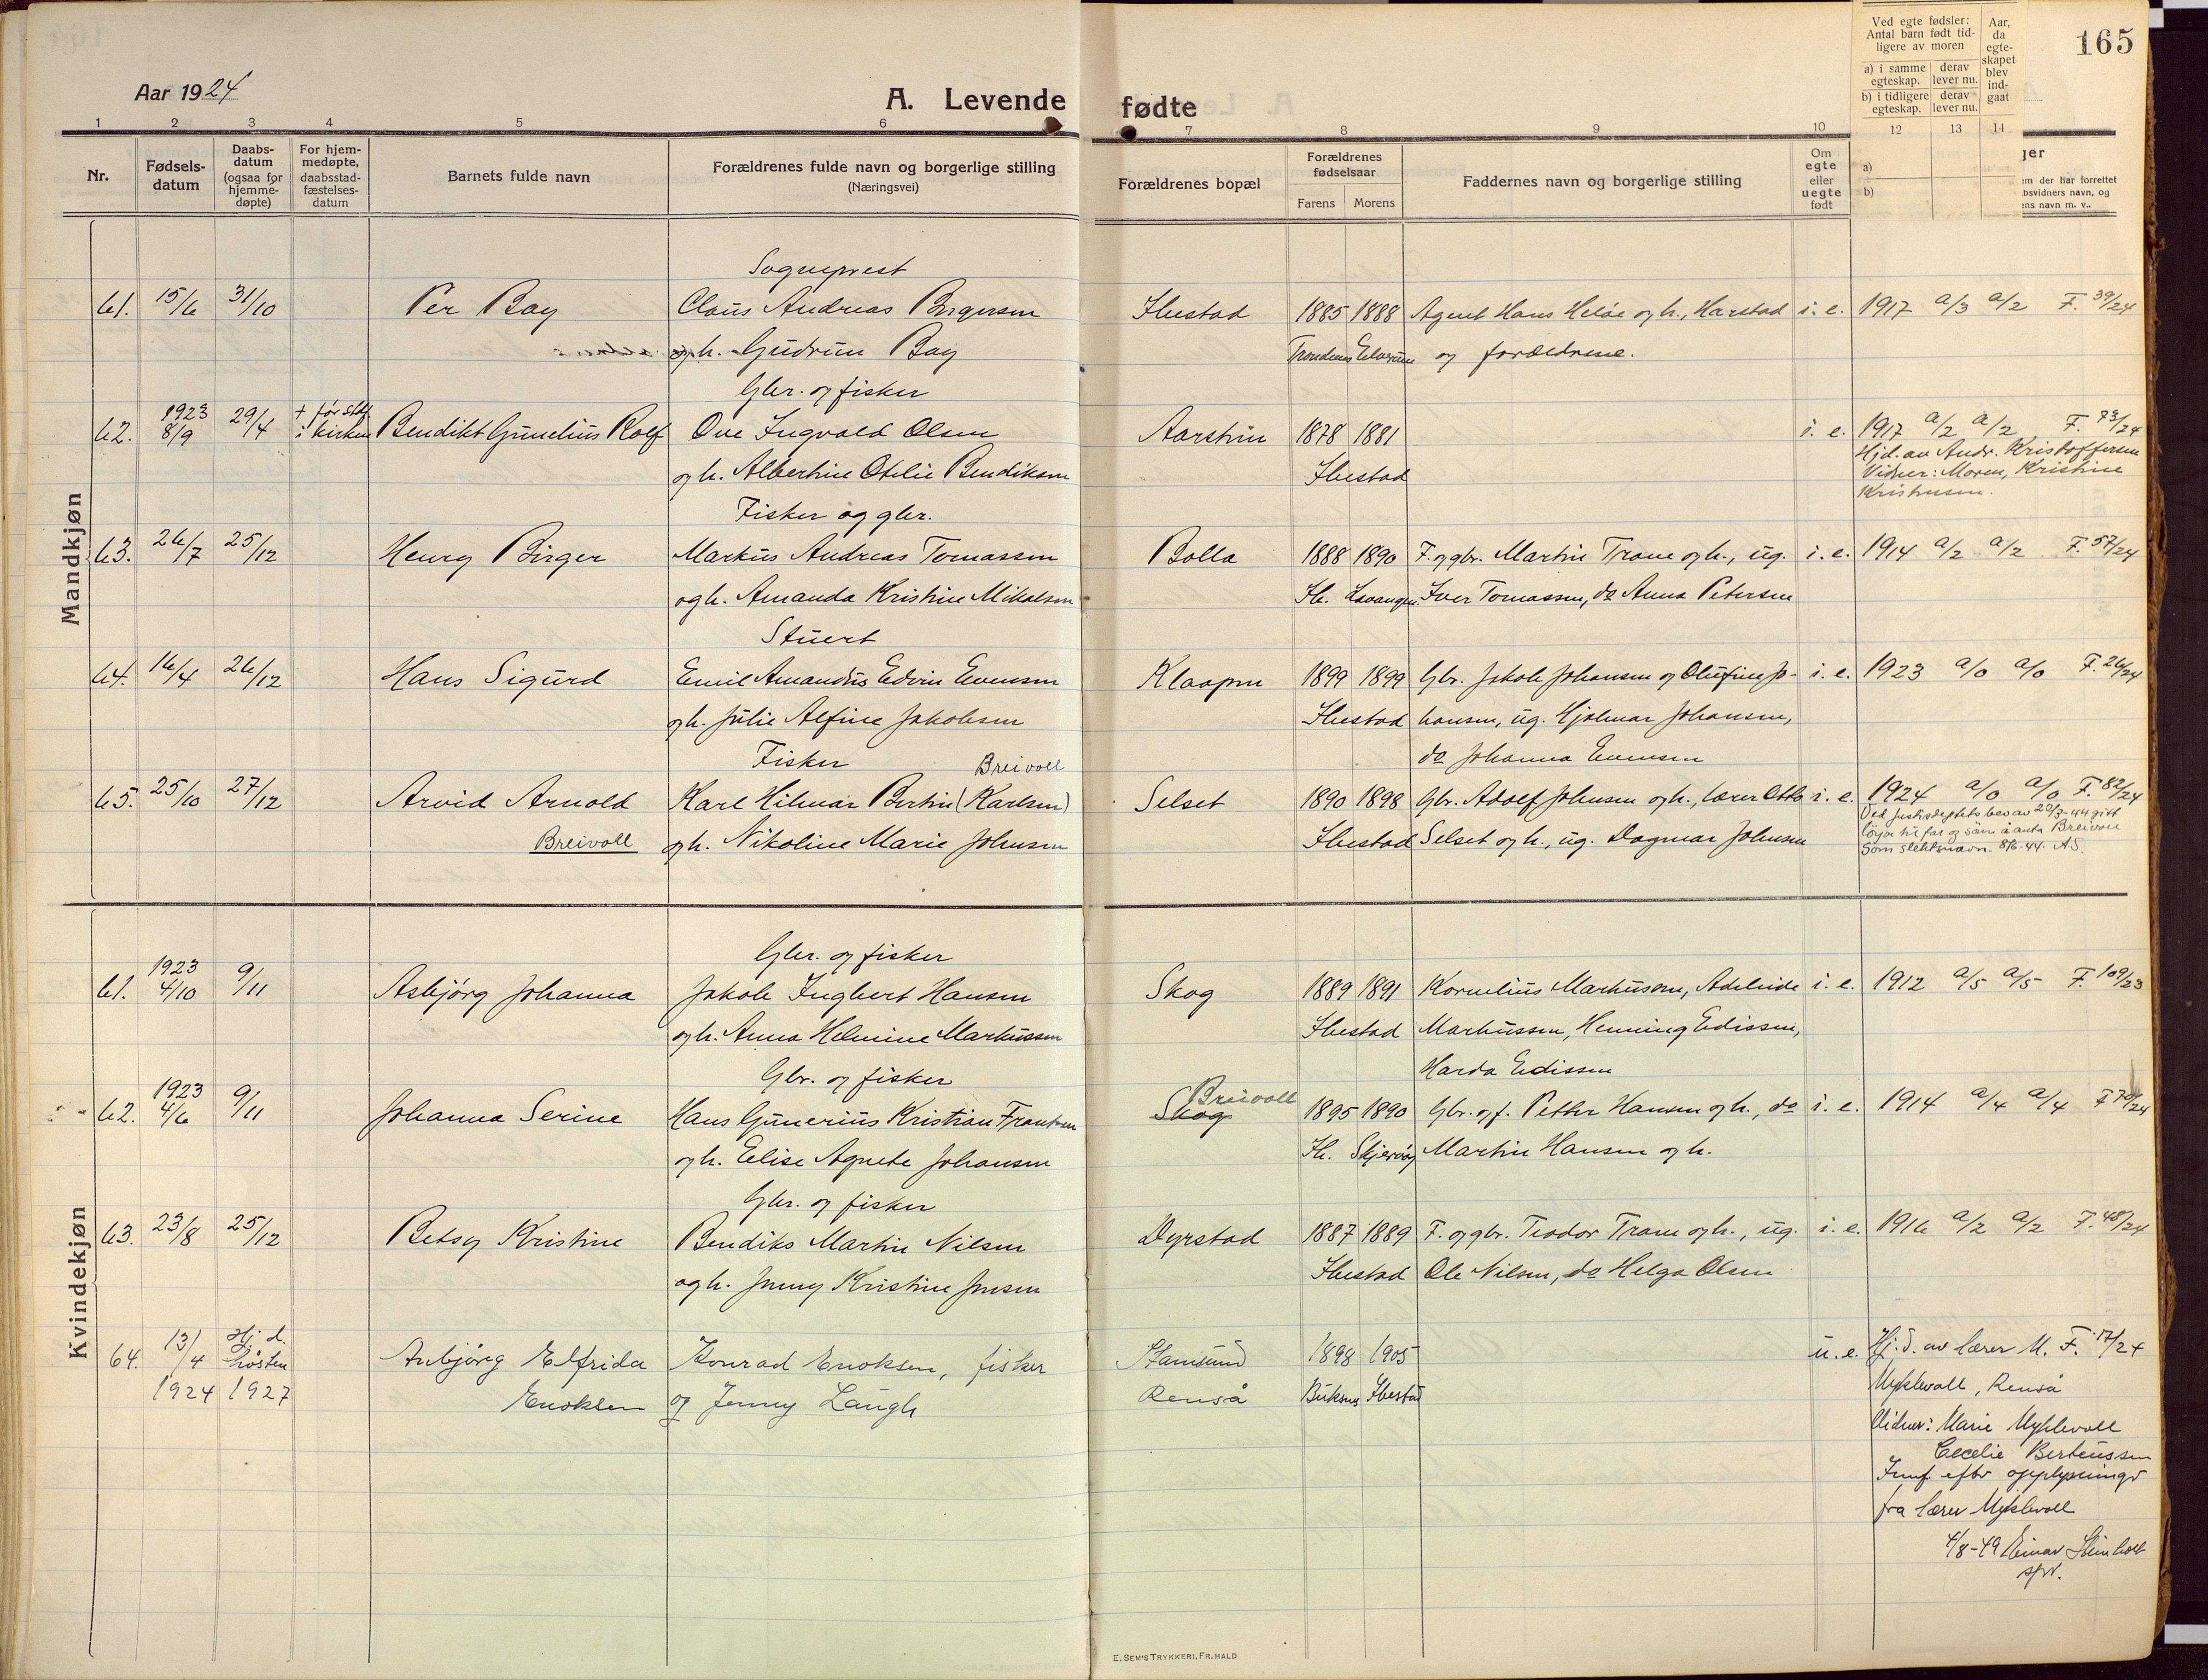 165
Aar 1924
A. Levende fødte
1 2 3 4 5 6 7 8 9 10 12 13 14
Nr.
Fødsels-
datum
Daabs-
datum
(ogsaa for
hjemme-
døpte)
For hjem-
medøpte,
daabsstad-
fæstelses-
datum
Barnets fulde navn
Forældrenes fulde navn og borgerlige stilling
(Næringsvei)
Forældrenes bopæl
Forældrenes
fødselsaar
Farens Morens
Faddernes navn og borgerlige stilling
Om
egte
eller
uegte
født
Ved egte fødsler:
Antal barn født tid-
ligere av moren
a) i samme
egteskap.
derav
lever nu.
b) i tidligere
egteskap.
derav
lever nu.
Aar,
da
egte-
skapet
blev
ind-
gaat
a)
b)
ger
em der har forrettet
bsvidners navn, og
ens navn m. v.
Mandkjøn
Sogneprest
61. 15/6 31/10 Per Bay Claus Andreas Birgersen Ibestad 1885 1888 Agent Hans Heløe og h., Harstad i. e. 1917 a/3 a/2 F. 39/24
og h. Gudrun Bay Trondenes Elverum og forældrene.
Gbr. og fisker
62. 1923 8/9 29/4 + før stdf. i kirken Bendikt Gunelius Rolf Ove Ingvald Olsen Aarstrin 1878 1881 i. e. 1917 a/2 a/2 F. 73/24
og h. Albertine Otelie Bendiksen Ibestad
Hjd. av Andr. Kristoffersen
Vidner: Moren, Kristine
Kristensen.
Fisker og gbr.
63. 26/7 25/12 Henry Birger Markus Andreas Tomassen Bolla 1888 1890 F. og gbr. Martin Trane og h., ug. i. e. 1914 a/2 a/2 F. 57/24
og h. Amanda Kristine Mikalsen Ib. Lavangen Iver Tomassen, do Anna Petersen
Stuert
64. 16/4 26/12 Hans Sigurd Emil Amandus Edvin Evensen Klaapen 1899 1899 Gbr. Jakob Johansen og Olufine Jo- i. e. 1923 a/0 a/0 F. 26/24
og h. Julie Alfine Jakobsen Ibestad hansen, ug. Hjalmar Johansen,
do Johanna Evensen
Fisker Breivoll
65. 25/10 27/12 Arvid Arnold Karl Hilmar Bertin (Karlsen) Selset 1890 1898 Gbr. Adolf Johnsen og h., lærer Otto i. e. 1924 a/0 a/0 F. 82/24
Breivoll og h. Nikoline Marie Johnsen Ibestad Selset og h., ug. Dagmar Johnsen
Ved justisdeptets bev av 20/3-44 gitt
løyve til far og sønn å anta Breivoll
som slektsnavn. 8/6-44. AS.
Kvindekjøn
Gbr. og fisker
61. 1923 4/10 9/11 Asbjørg Johanna Jakob Ingbert Hansen Skog 1889 1891 Kornelius Markussen, Adeleide i. e. 1912 a/5 a/5 F. 109/23
og h. Anna Helmine Markussen Ibestad Markussen, Henning Edissen,
Harda Edissen
Gbr. og fisker
62. 1923 4/6 9/11 Johanna Serine Hans Gunerius Kristian Frantsen Skog Breivoll 1895 1890 Gbr. og f. Petter Hansen og h., do i. e. 1914 a/4 a/4 F 70/24
og h. Elise Agnete Johansen Ib. Skjervøy Martin Hansen og h.
Gbr. og fisker
63. 23/8 25/12 Betsy Kristine Bendiks Martin Nilsen Dyrstad 1887 1889 F. og gbr. Teodor Trane og h., ug. i. e. 1916 a/2 a/2 F. 48/24
og h. Jenny Kristine Jensen Ibestad Ole Nilsen, do Helga Olsen
64. 13/4 1924 Hj. d. høsten 1927 Anbjørg Elfrida Konrad Enoksen, fisker Stamsund 1898 1905 u. e. Hj. d. av lærer M. F. 17/24
Enoksen og Jenny Laugh Renså Buksnes Ibestad Myklevoll, Renså
Vidner: Marie Myklevoll
Cecelie Berteussen
Innf. efter opplysninger
fra lærer Myklevoll
4/8-49 Einar Steinholt
spr.
E. SEM'S TRYKKERI, FR.HALD